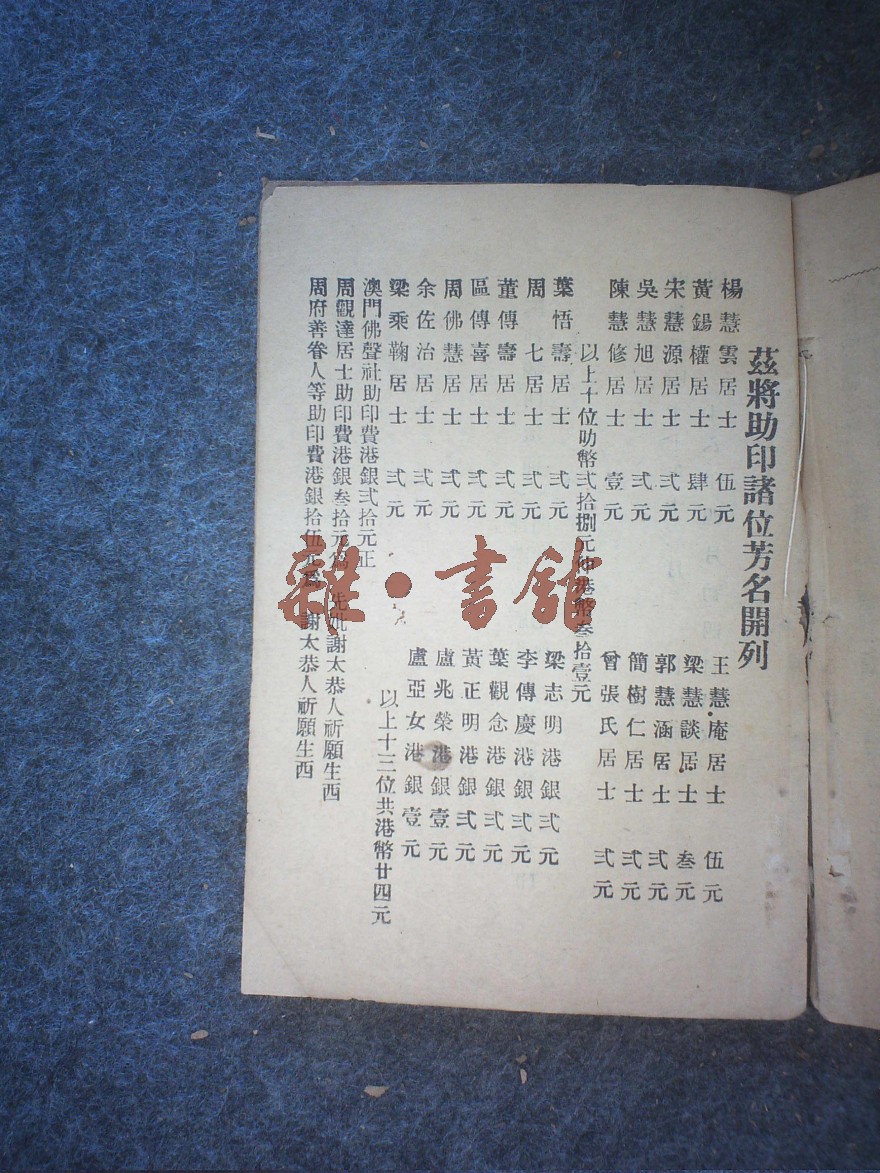 茲將助印諸位芳名開列
楊慧雲居士 伍元 王慧庵居士 伍元
黃錫權居士 肆元 梁慧談居士 叁元
宋慧源居士 弍元 郭慧涵居士 弍元
吳慧旭居士 弍元 簡樹仁居士 弍元
陳慧修居士 壹元 曾張氏居士 弍元
以上十位助幣弍拾捌元伸港幣叁拾壹元
葉悟壽居士 弍元 梁志明港銀弍元
周七居士 弍元 李傳慶港銀弍元
董傳壽居士 弍元 葉觀念港銀弍元
區傳喜居士 弍元 黃正明港銀弍元
周佛慧居士 弍元 盧兆榮港銀壹元
余佐治居士 弍元 盧亞女港銀壹元
梁乘鞠居士 弍元 以上十三位共港幣廿四元
澳門佛聲社助印費港銀弍拾元正
周觀達居士助印費港銀叁拾元為 先妣謝太恭人祈願生西
周府善眷人等助印費港銀拾伍元為 謝太恭人祈願生西
雜·書館